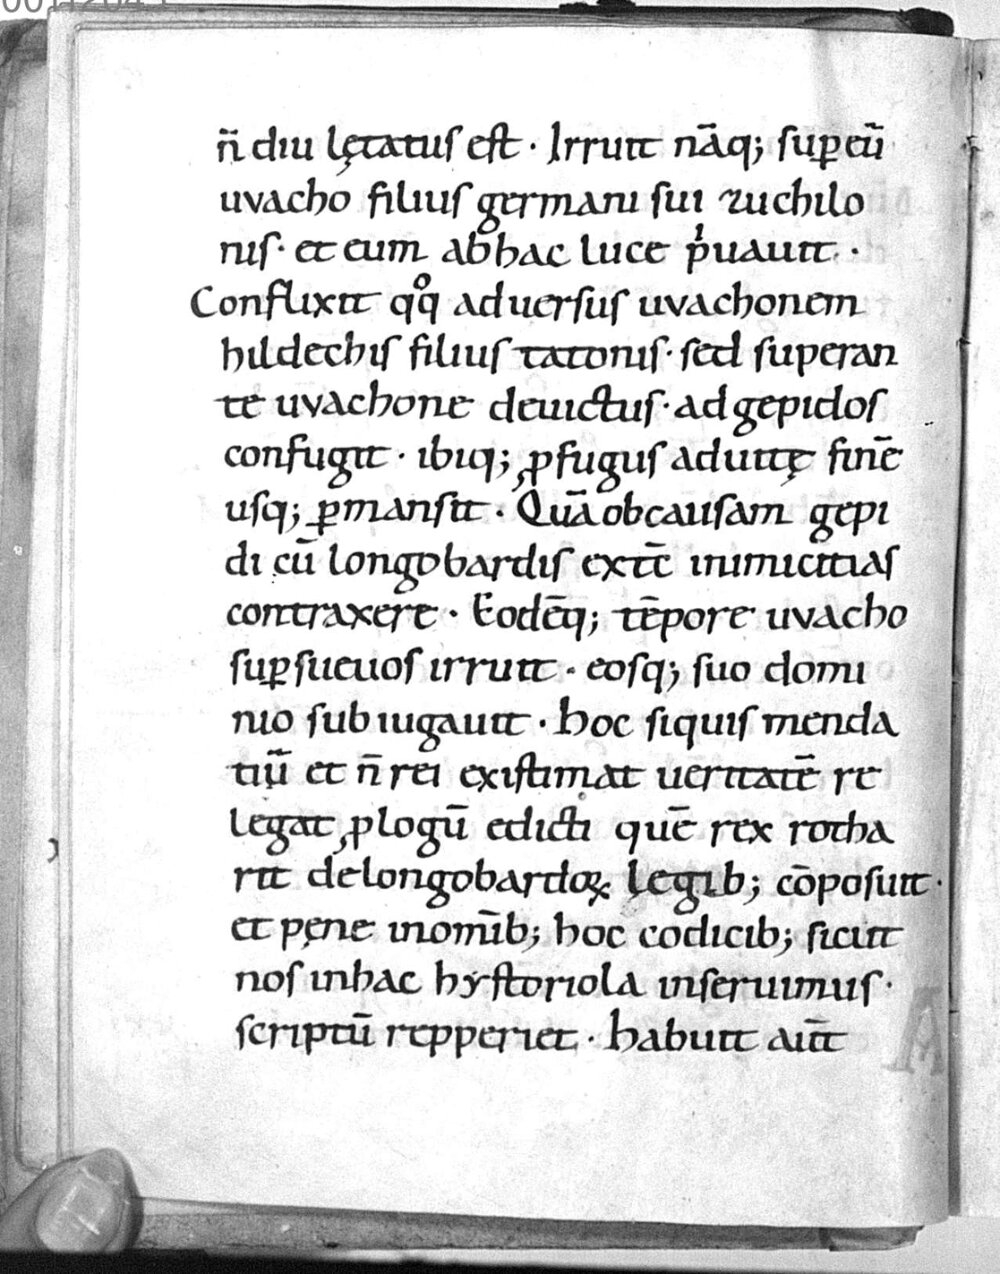 n̄ diu lętatus est · Irruit nāq; sup̲ eū
uvacho filius germani sui zuchilo
nis · et eum ab hac luce p̍uauit ·
Conflixit qͦq̣ aduersus uvachonem
hildechis filius tatonis · sed superan
te uvachone deuictus · ad gepidos
confugit · ibiq; ꝓfugus ad uitę finē
usq; ꝑmansit · Quā ob causam gepi
di cū longobardis extc̄ inimicitias
contraxere · Eodēq; tēpore uvacho
suꝑ sueuos irruit · eosq; suo domi
nio subiugauit · hoc siquis menda
tiū et n̄ rei existimat ueritatē re
legat ꝓlogū edicti quē rex rotha
rit de longobardoꝝ legib; cōposuit ·
et pęne in om̄ib; hoc codicib; sicut
nos in hac hystoriola inseruimus ·
scriptū repperiet · habuit aut̄